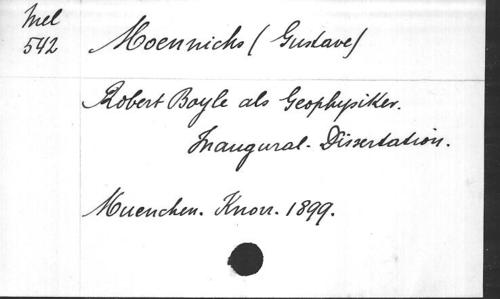 Mel
542
Moennichs (Gustave)
Robert Boyle als Geophysiker.
Inaugural-Dissertation.
Muenchen. Knorr. 1899.